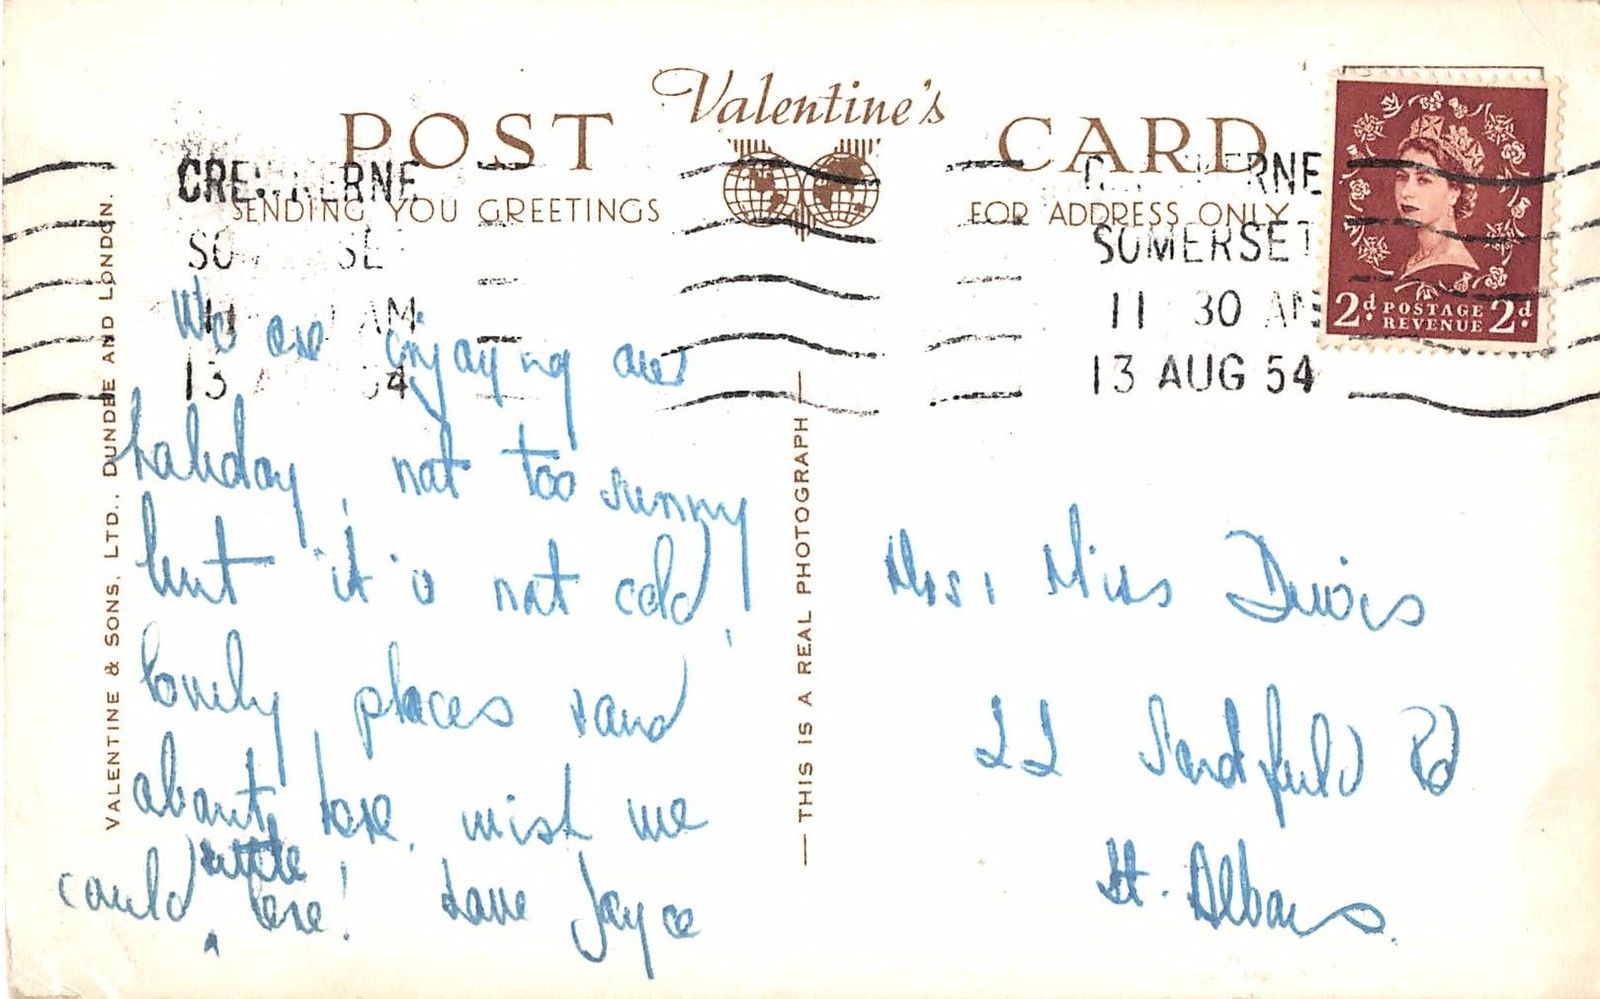 Valentine's
POST CARD
SENDING YOU GREETINGS
FOR ADDRESS ONLY
CREWKERNE
SOMERSET
AM
13 54
CREWKERNE
SOMERSET
11 30 AM
13 AUG 54
2d POSTAGE REVENUE 2d
VALENTINE & SONS, LTD., DUNDEE AND LONDON.
THIS IS A REAL PHOTOGRAPH
We are enjoying our
holiday, not too sunny
but it is not cold!
lovely places round
about here, wish we
could settle here! Love Joyce
Mrs. Miss
22 Sandfield Rd
St. Albans.